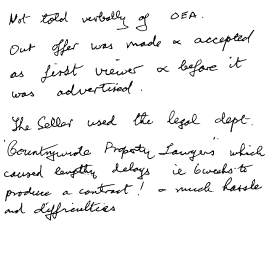 Not told verbally of OEA.
Our offer was made & accepted
as first viewer & before it
was advertised.
The Seller used the legal dept.
"Countrywide Property Lawyers" which
caused lengthy delays ie 6 weeks to
produce a contract! & much hassle
and difficulties